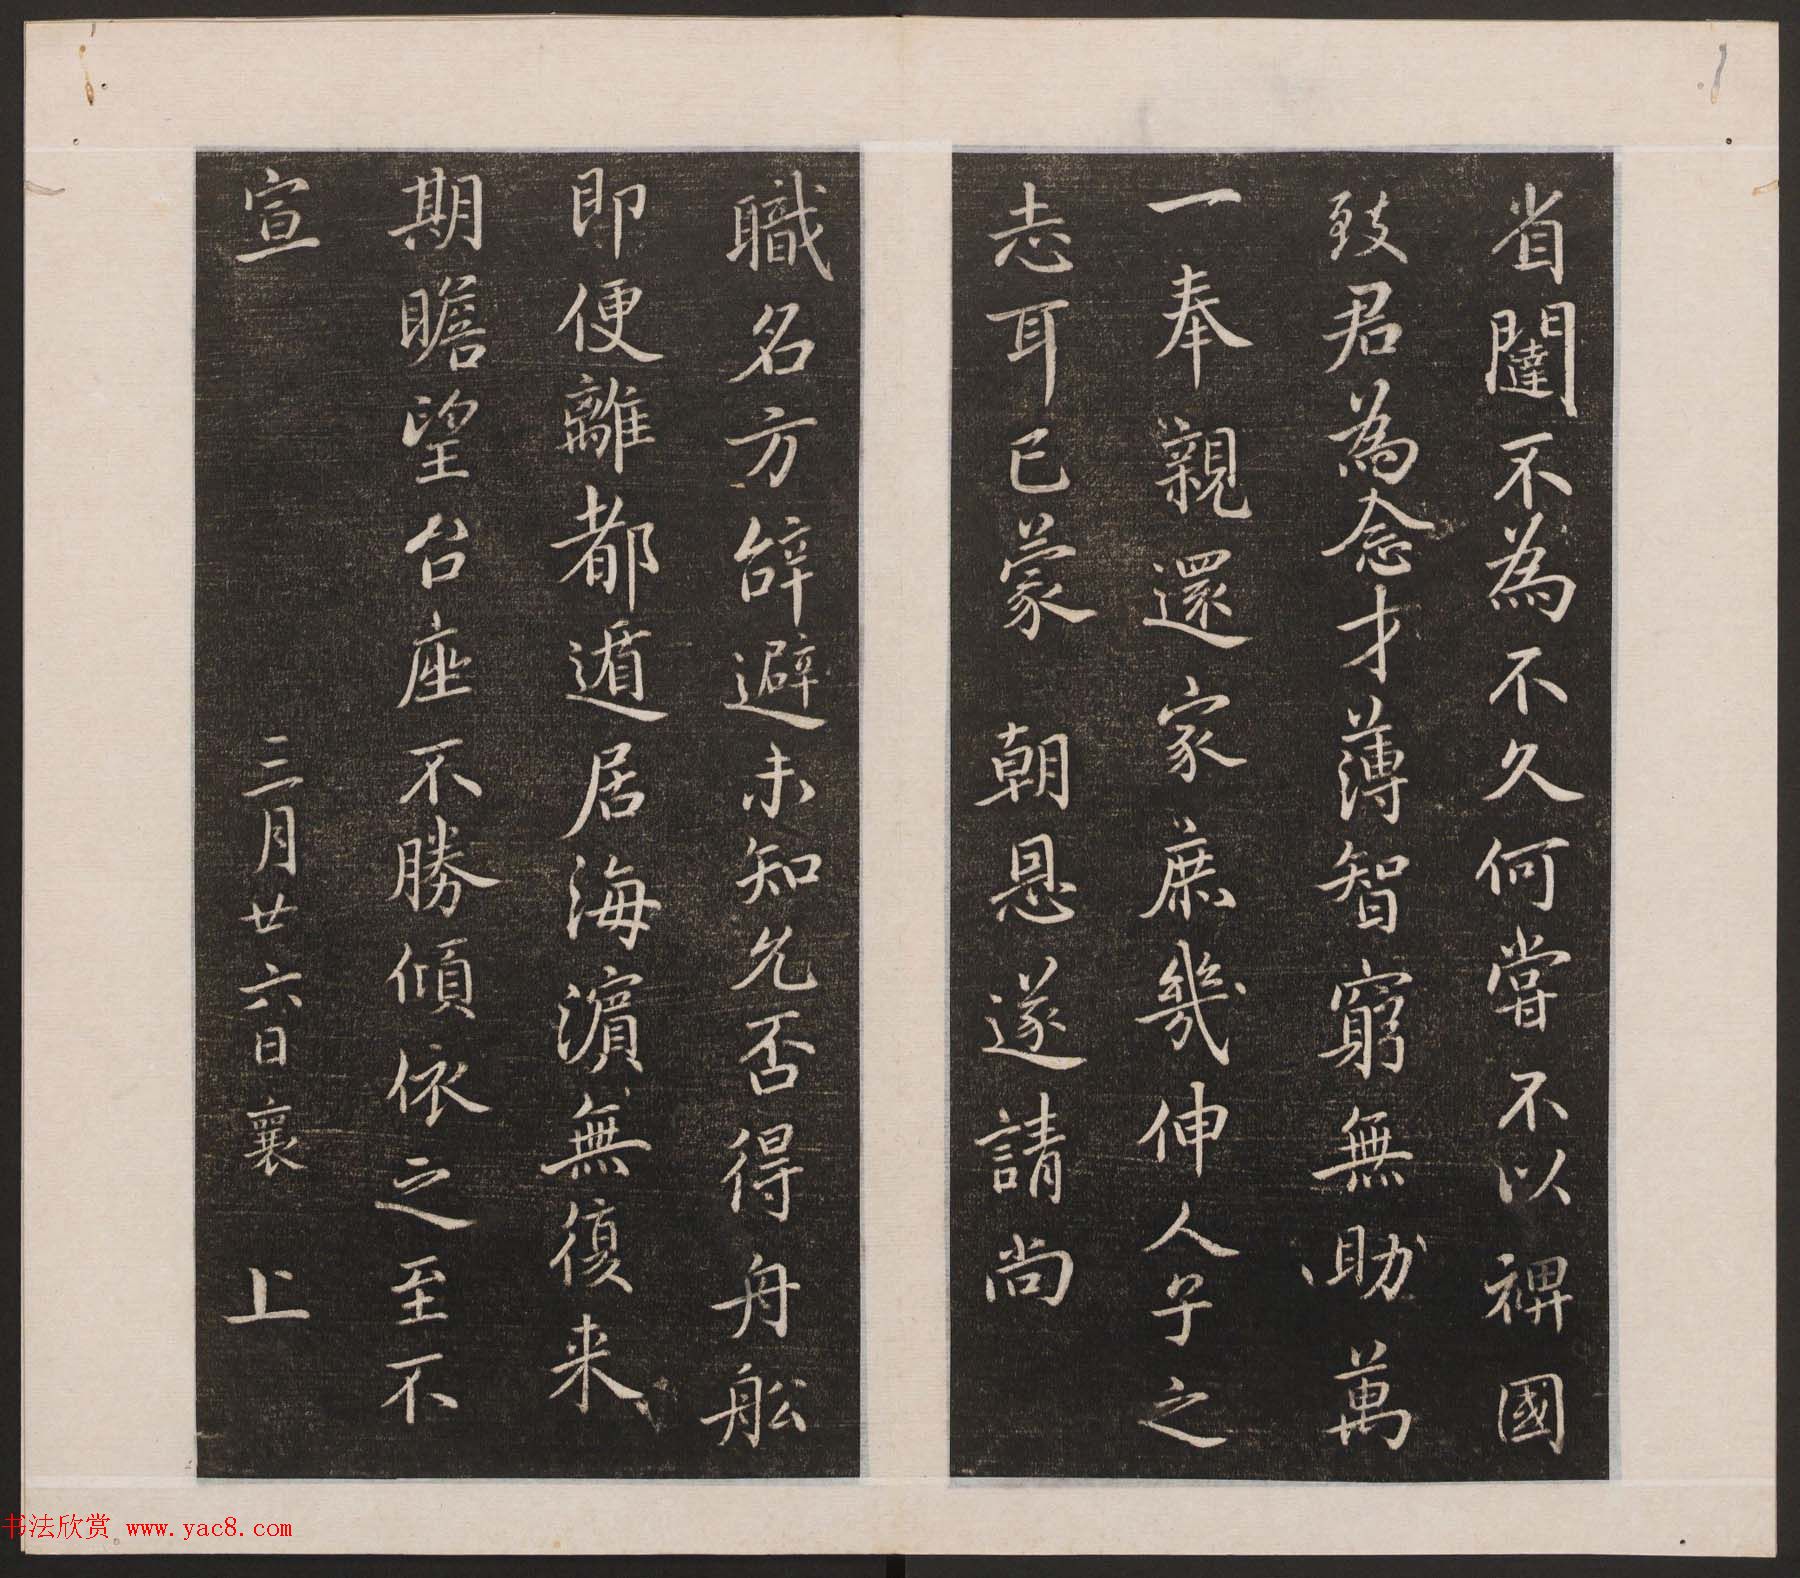 省闥不為不久何嘗不以裨國
致君為念才薄智窮無助萬
一奉親還家庶幾伸人子之
志耳已蒙 朝恩遂請尚
職名方辭避未知允否得舟舩
即便離都遁居海濵無復来
期瞻望台座不勝傾依之至不
宣 三月廿六日襄 上
书法欣赏 www.yac8.com